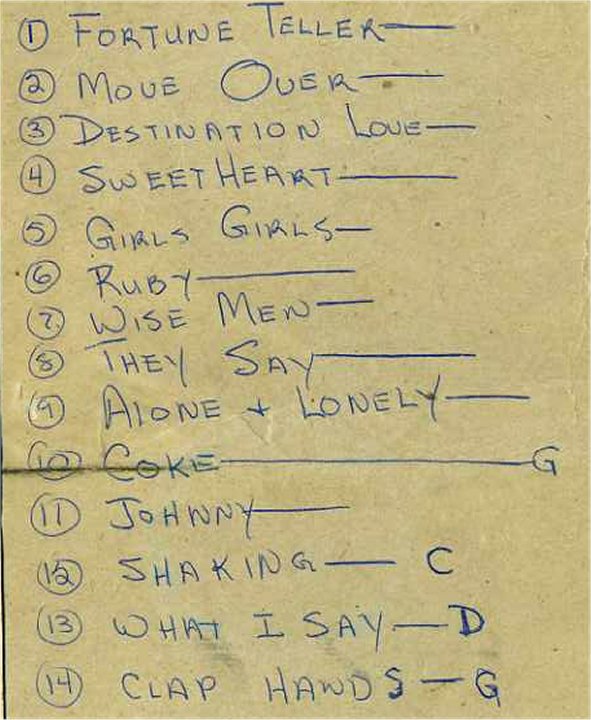 ① FORTUNE TELLER—
② MOVE OVER—
③ DESTINATION LOVE—
④ SWEETHEART—
⑤ GIRLS GIRLS—
⑥ RUBY—
⑦ WISE MEN—
⑧ THEY SAY—
⑨ ALONE + LONELY—
⑩ COKE—G
⑪ JOHNNY—
⑫ SHAKING— C
⑬ WHAT I SAY—D
⑭ CLAP HANDS—G